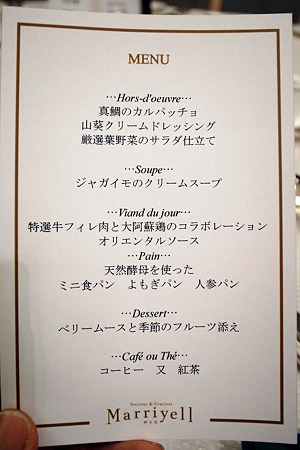 MENU
…Hors-d'oeuvre…
真鯛のカルパッチョ
山葵クリームドレッシング
厳選葉野菜のサラダ仕立て
…Soupe…
ジャガイモのクリームスープ
…Viand du jour…
特選牛フィレ肉と大阿蘇鶏のコラボレーション
オリエンタルソース
…Pain…
天然酵母を使った
ミニ食パン　よもぎパン　人参パン
…Dessert…
ベリームースと季節のフルーツ添え
…Café ou Thé…
コーヒー　又　紅茶
Precious & Gracious
Marriyell